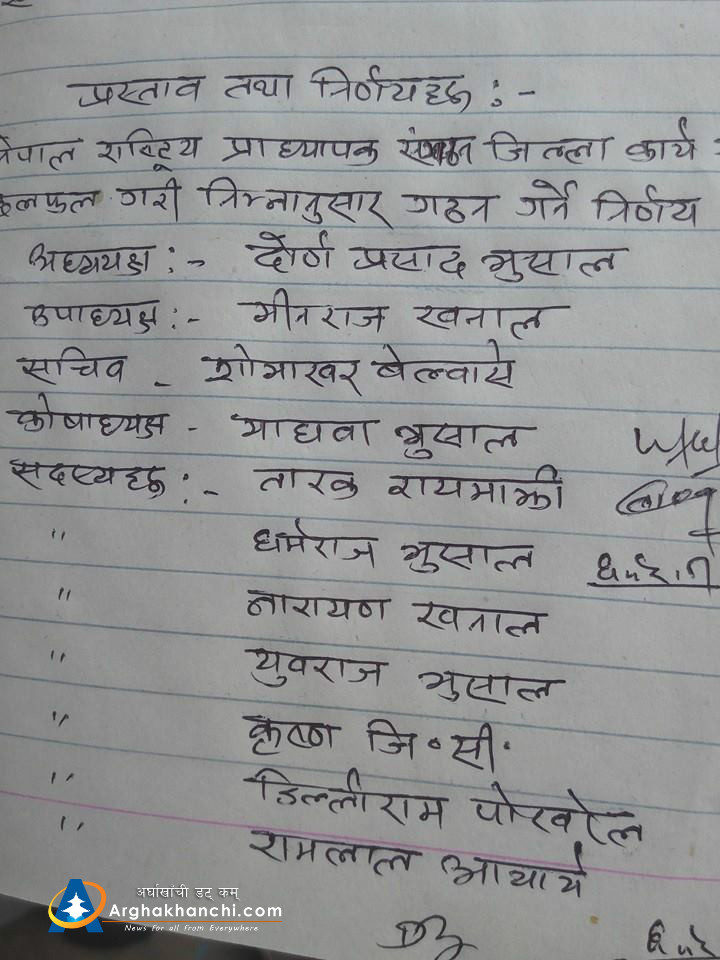 प्रस्ताव तथा निर्णयहरु :-
नेपाल राष्ट्रिय प्राध्यापक संगठन जिल्ला कार्य
छलफल गरी निम्नानुसार गठन गर्ने निर्णय
अध्यक्ष :- द्रोर्ण प्रसाद भुसाल
उपाध्यक्ष :- मीनराज खनाल
सचिव - शोभाखर बेल्वासे
कोषाध्यक्ष - माधवा भुसाल
सदस्यहरु :- तारक रायमाझी
" धर्मराज भुसाल
" नारायण खनाल
" युवराज भुसाल
" कृष्ण जि॰सी॰
" डिल्लीराम पोखरेल
" रामलाल आचार्य
अर्घाखाँची डट् कम्
Arghakhanchi.com
News for all from Everywhere